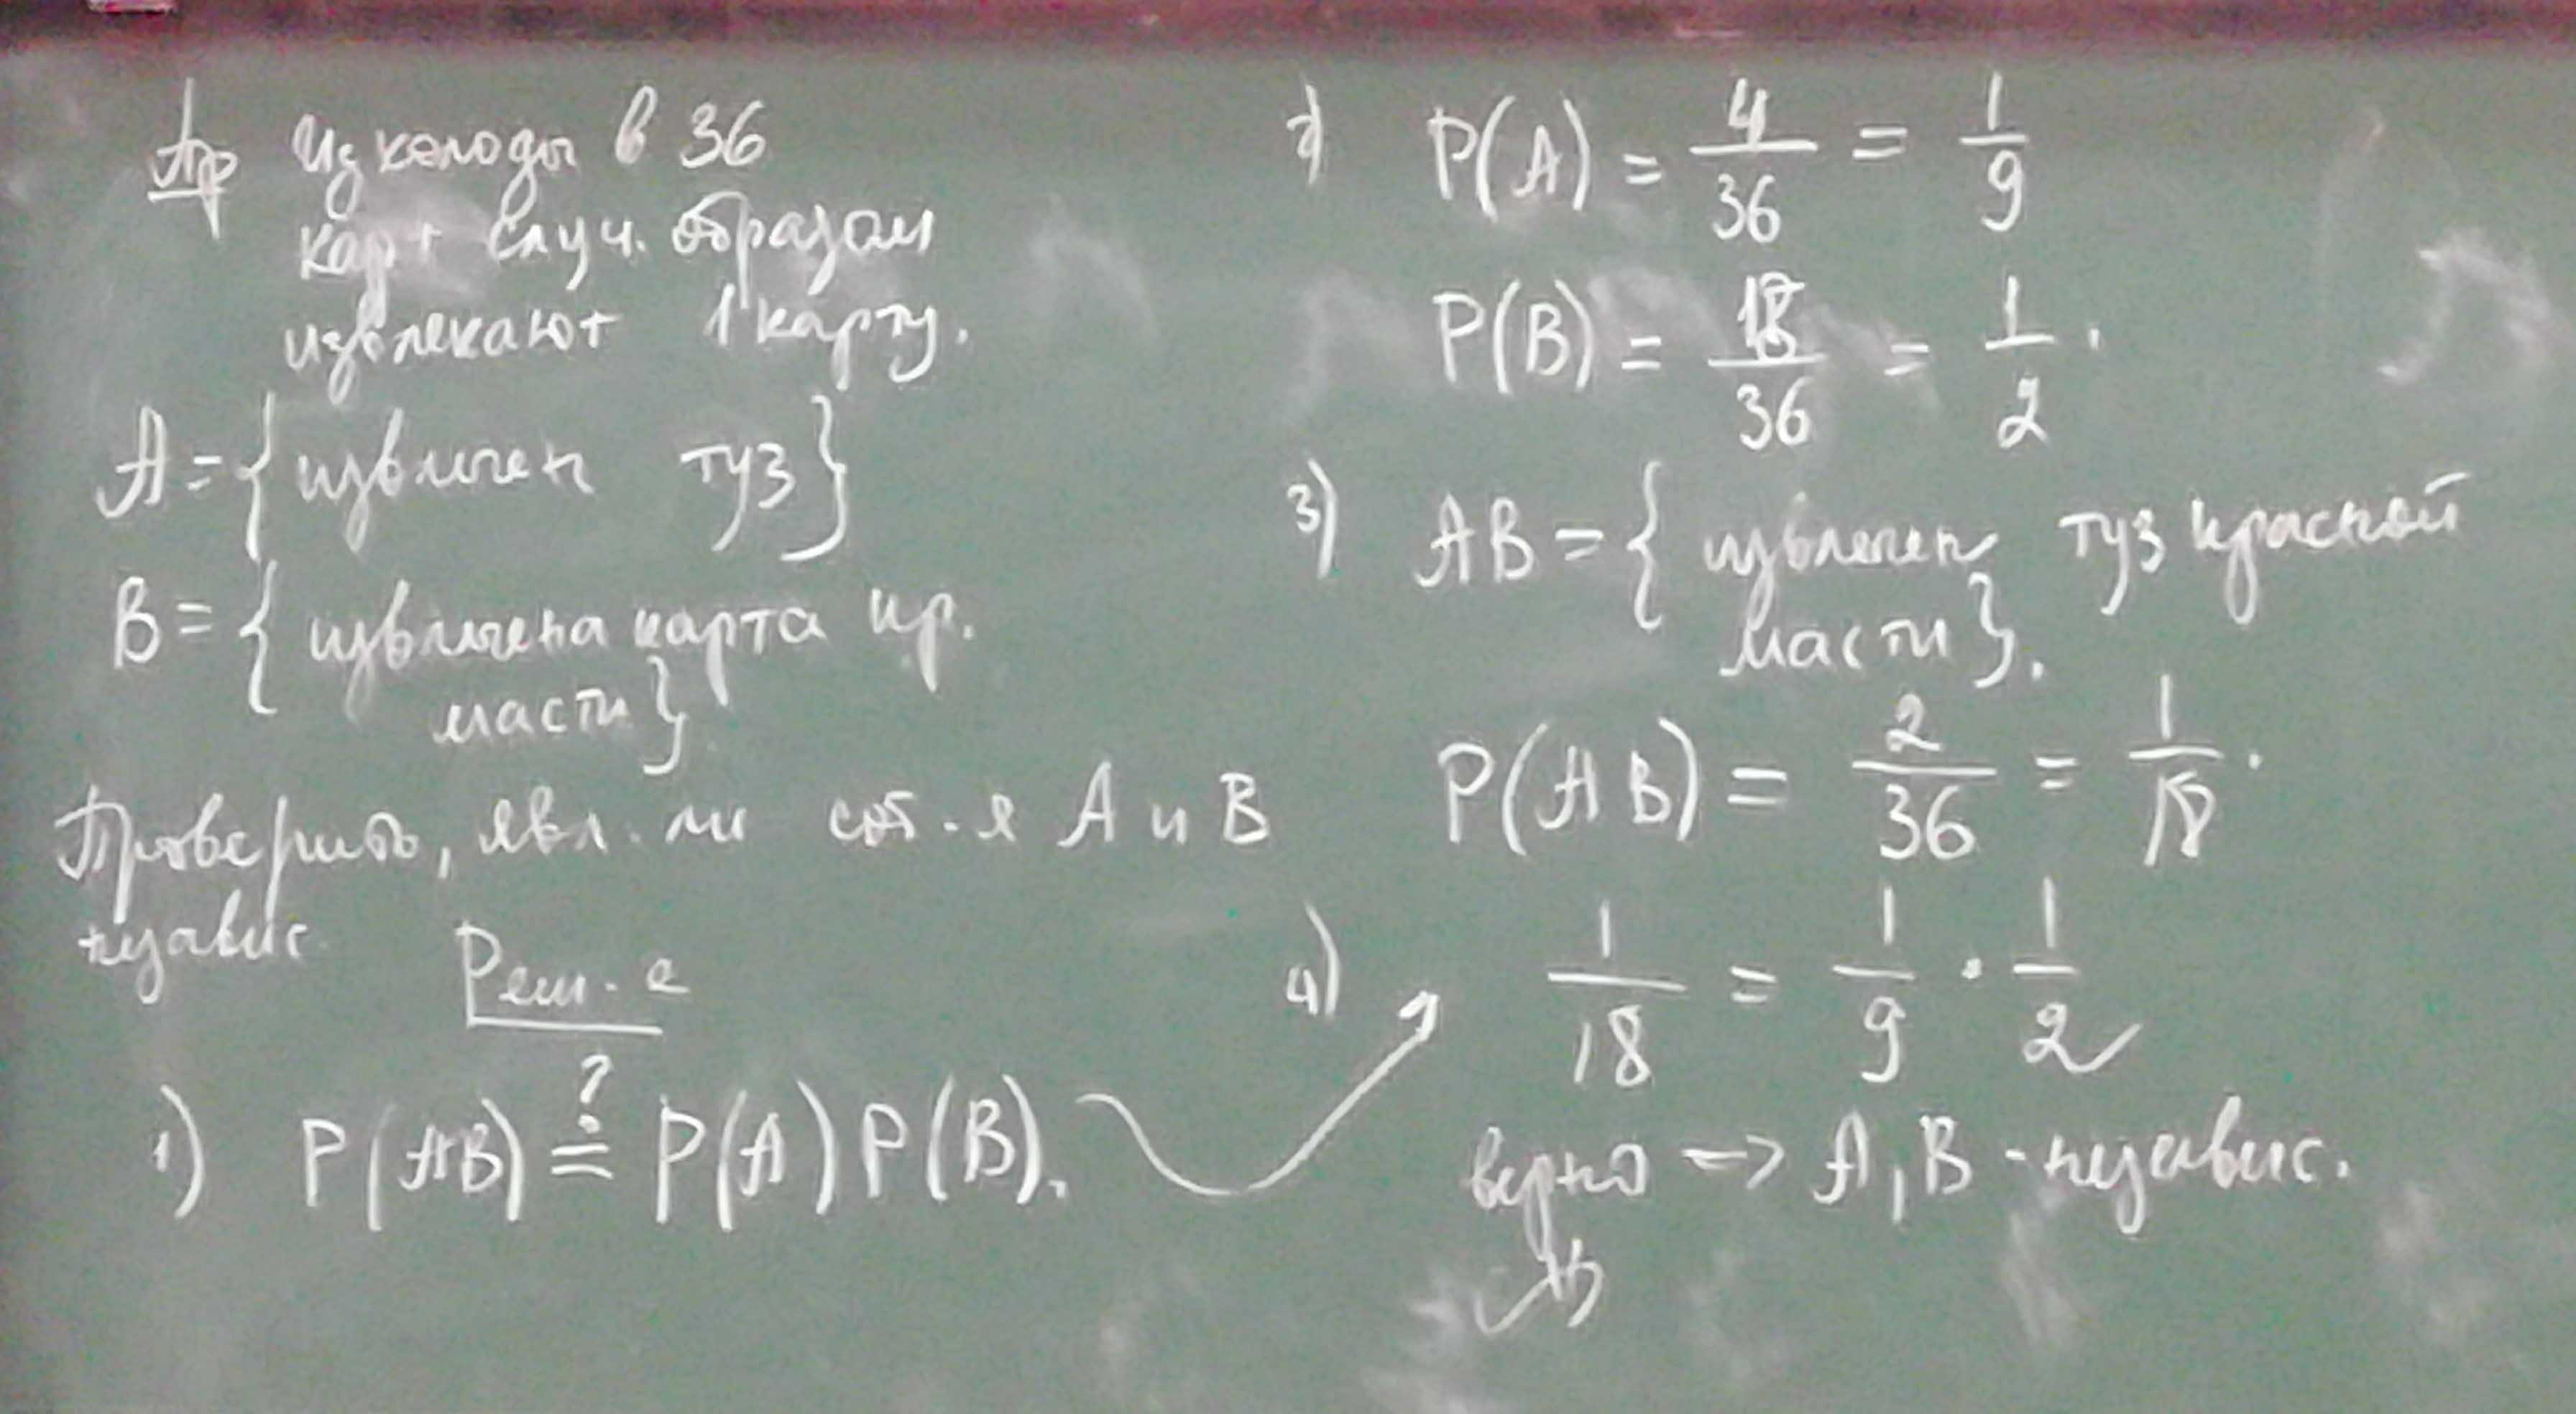 Пр Из колоды в 36
карт случ. образом
извлекают 1 карту.
A = { извлечен туз }
B = { извлечена карта кр.
масти }
Проверить, явл. ли соб-я A и B
независ.
Реш-е
1) P(AB) ≟ P(A) P(B).
2) P(A) = 4/36 = 1/9
P(B) = 18/36 = 1/2 .
3) AB = { извлечен туз красной
масти }.
P(AB) = 2/36 = 1/18 .
4) 1/18 = 1/9 · 1/2
верно => A, B - независ.